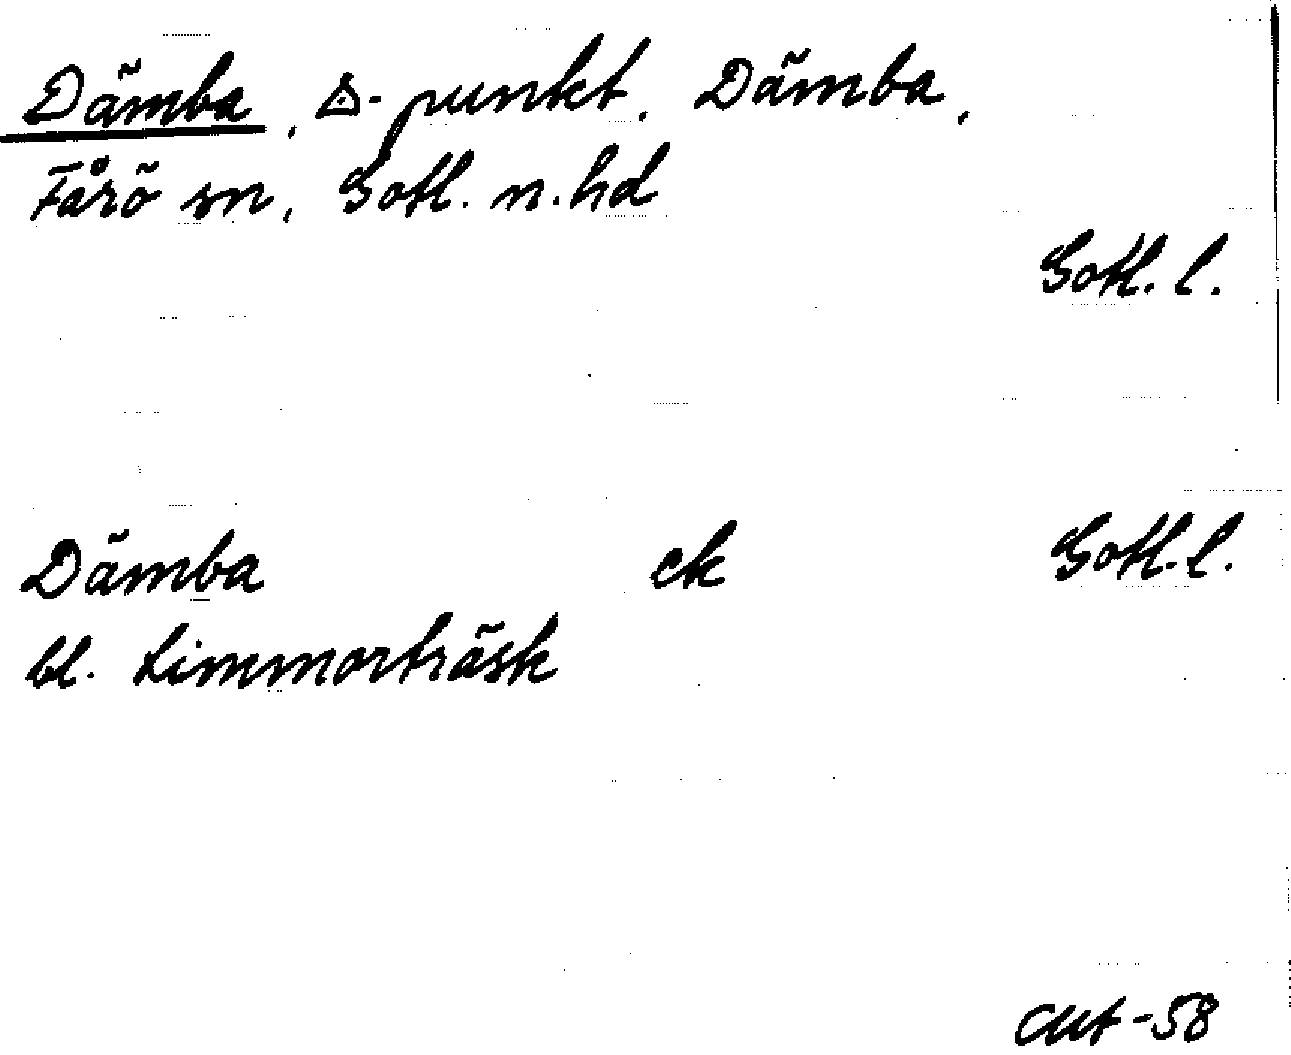 Dämba, △-punkt, Dämba,
Fårö sn, Gotl. n. hd
Gotl. l.
Dämba ek Gotl. l.
bl. Limmorträsk
-58